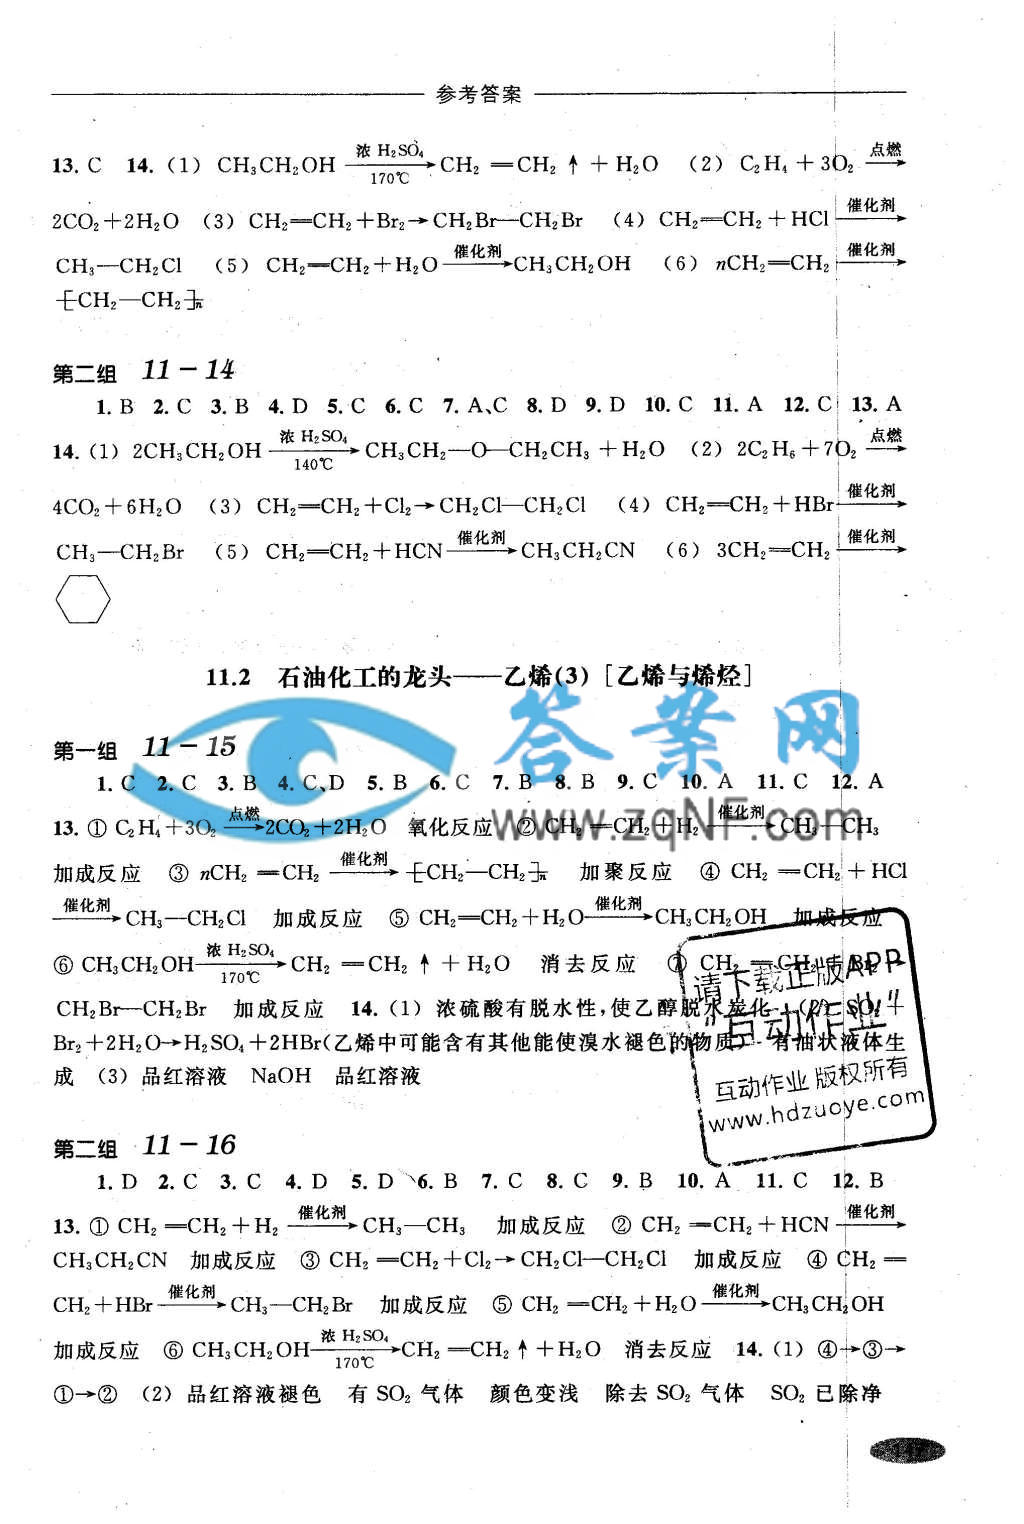 参考答案
13. C 14. (1) CH₃CH₂OH —浓 H₂SO₄/170℃→ CH₂＝CH₂↑＋H₂O (2) C₂H₄＋3O₂ —点燃→
2CO₂＋2H₂O (3) CH₂＝CH₂＋Br₂→CH₂Br—CH₂Br (4) CH₂＝CH₂＋HCl —催化剂→
CH₃—CH₂Cl (5) CH₂＝CH₂＋H₂O —催化剂→ CH₃CH₂OH (6) nCH₂＝CH₂ —催化剂→
⁅CH₂—CH₂⁆ₙ
第二组 11－14
1. B 2. C 3. B 4. D 5. C 6. C 7. A、C 8. D 9. D 10. C 11. A 12. C 13. A
14. (1) 2CH₃CH₂OH —浓 H₂SO₄/140℃→ CH₃CH₂—O—CH₂CH₃＋H₂O (2) 2C₂H₆＋7O₂ —点燃→
4CO₂＋6H₂O (3) CH₂＝CH₂＋Cl₂→CH₂Cl—CH₂Cl (4) CH₂＝CH₂＋HBr —催化剂→
CH₃—CH₂Br (5) CH₂＝CH₂＋HCN —催化剂→ CH₃CH₂CN (6) 3CH₂＝CH₂ —催化剂→
11.2 石油化工的龙头——乙烯(3) [乙烯与烯烃]
答案网
www.zqNF.com
第一组 11－15
1. C 2. C 3. B 4. C、D 5. B 6. C 7. B 8. B 9. C 10. A 11. C 12. A
13. ① C₂H₄＋3O₂ —点燃→ 2CO₂＋2H₂O 氧化反应 ② CH₂＝CH₂＋H₂ —催化剂→ CH₃—CH₃
加成反应 ③ nCH₂＝CH₂ —催化剂→ ⁅CH₂—CH₂⁆ₙ 加聚反应 ④ CH₂＝CH₂＋HCl
—催化剂→ CH₃—CH₂Cl 加成反应 ⑤ CH₂＝CH₂＋H₂O —催化剂→ CH₃CH₂OH 加成反应
⑥ CH₃CH₂OH —浓 H₂SO₄/170℃→ CH₂＝CH₂↑＋H₂O 消去反应 ⑦ CH₂＝CH₂＋Br₂→
CH₂Br—CH₂Br 加成反应 14. (1) 浓硫酸有脱水性，使乙醇脱水炭化 (2) SO₂＋
Br₂＋2H₂O→H₂SO₄＋2HBr(乙烯中可能含有其他能使溴水褪色的物质) 有油状液体生
成 (3) 品红溶液 NaOH 品红溶液
请下载正版APP
"互动作业"
互动作业 版权所有
www.hdzuoye.com
第二组 11－16
1. D 2. C 3. C 4. D 5. D 6. B 7. C 8. C 9. B 10. A 11. C 12. B
13. ① CH₂＝CH₂＋H₂ —催化剂→ CH₃—CH₃ 加成反应 ② CH₂＝CH₂＋HCN —催化剂→
CH₃CH₂CN 加成反应 ③ CH₂＝CH₂＋Cl₂→CH₂Cl—CH₂Cl 加成反应 ④ CH₂＝
CH₂＋HBr —催化剂→ CH₃—CH₂Br 加成反应 ⑤ CH₂＝CH₂＋H₂O —催化剂→ CH₃CH₂OH
加成反应 ⑥ CH₃CH₂OH —浓 H₂SO₄/170℃→ CH₂＝CH₂↑＋H₂O 消去反应 14. (1) ④→③→
①→② (2) 品红溶液褪色 有 SO₂ 气体 颜色变浅 除去 SO₂ 气体 SO₂ 已除净